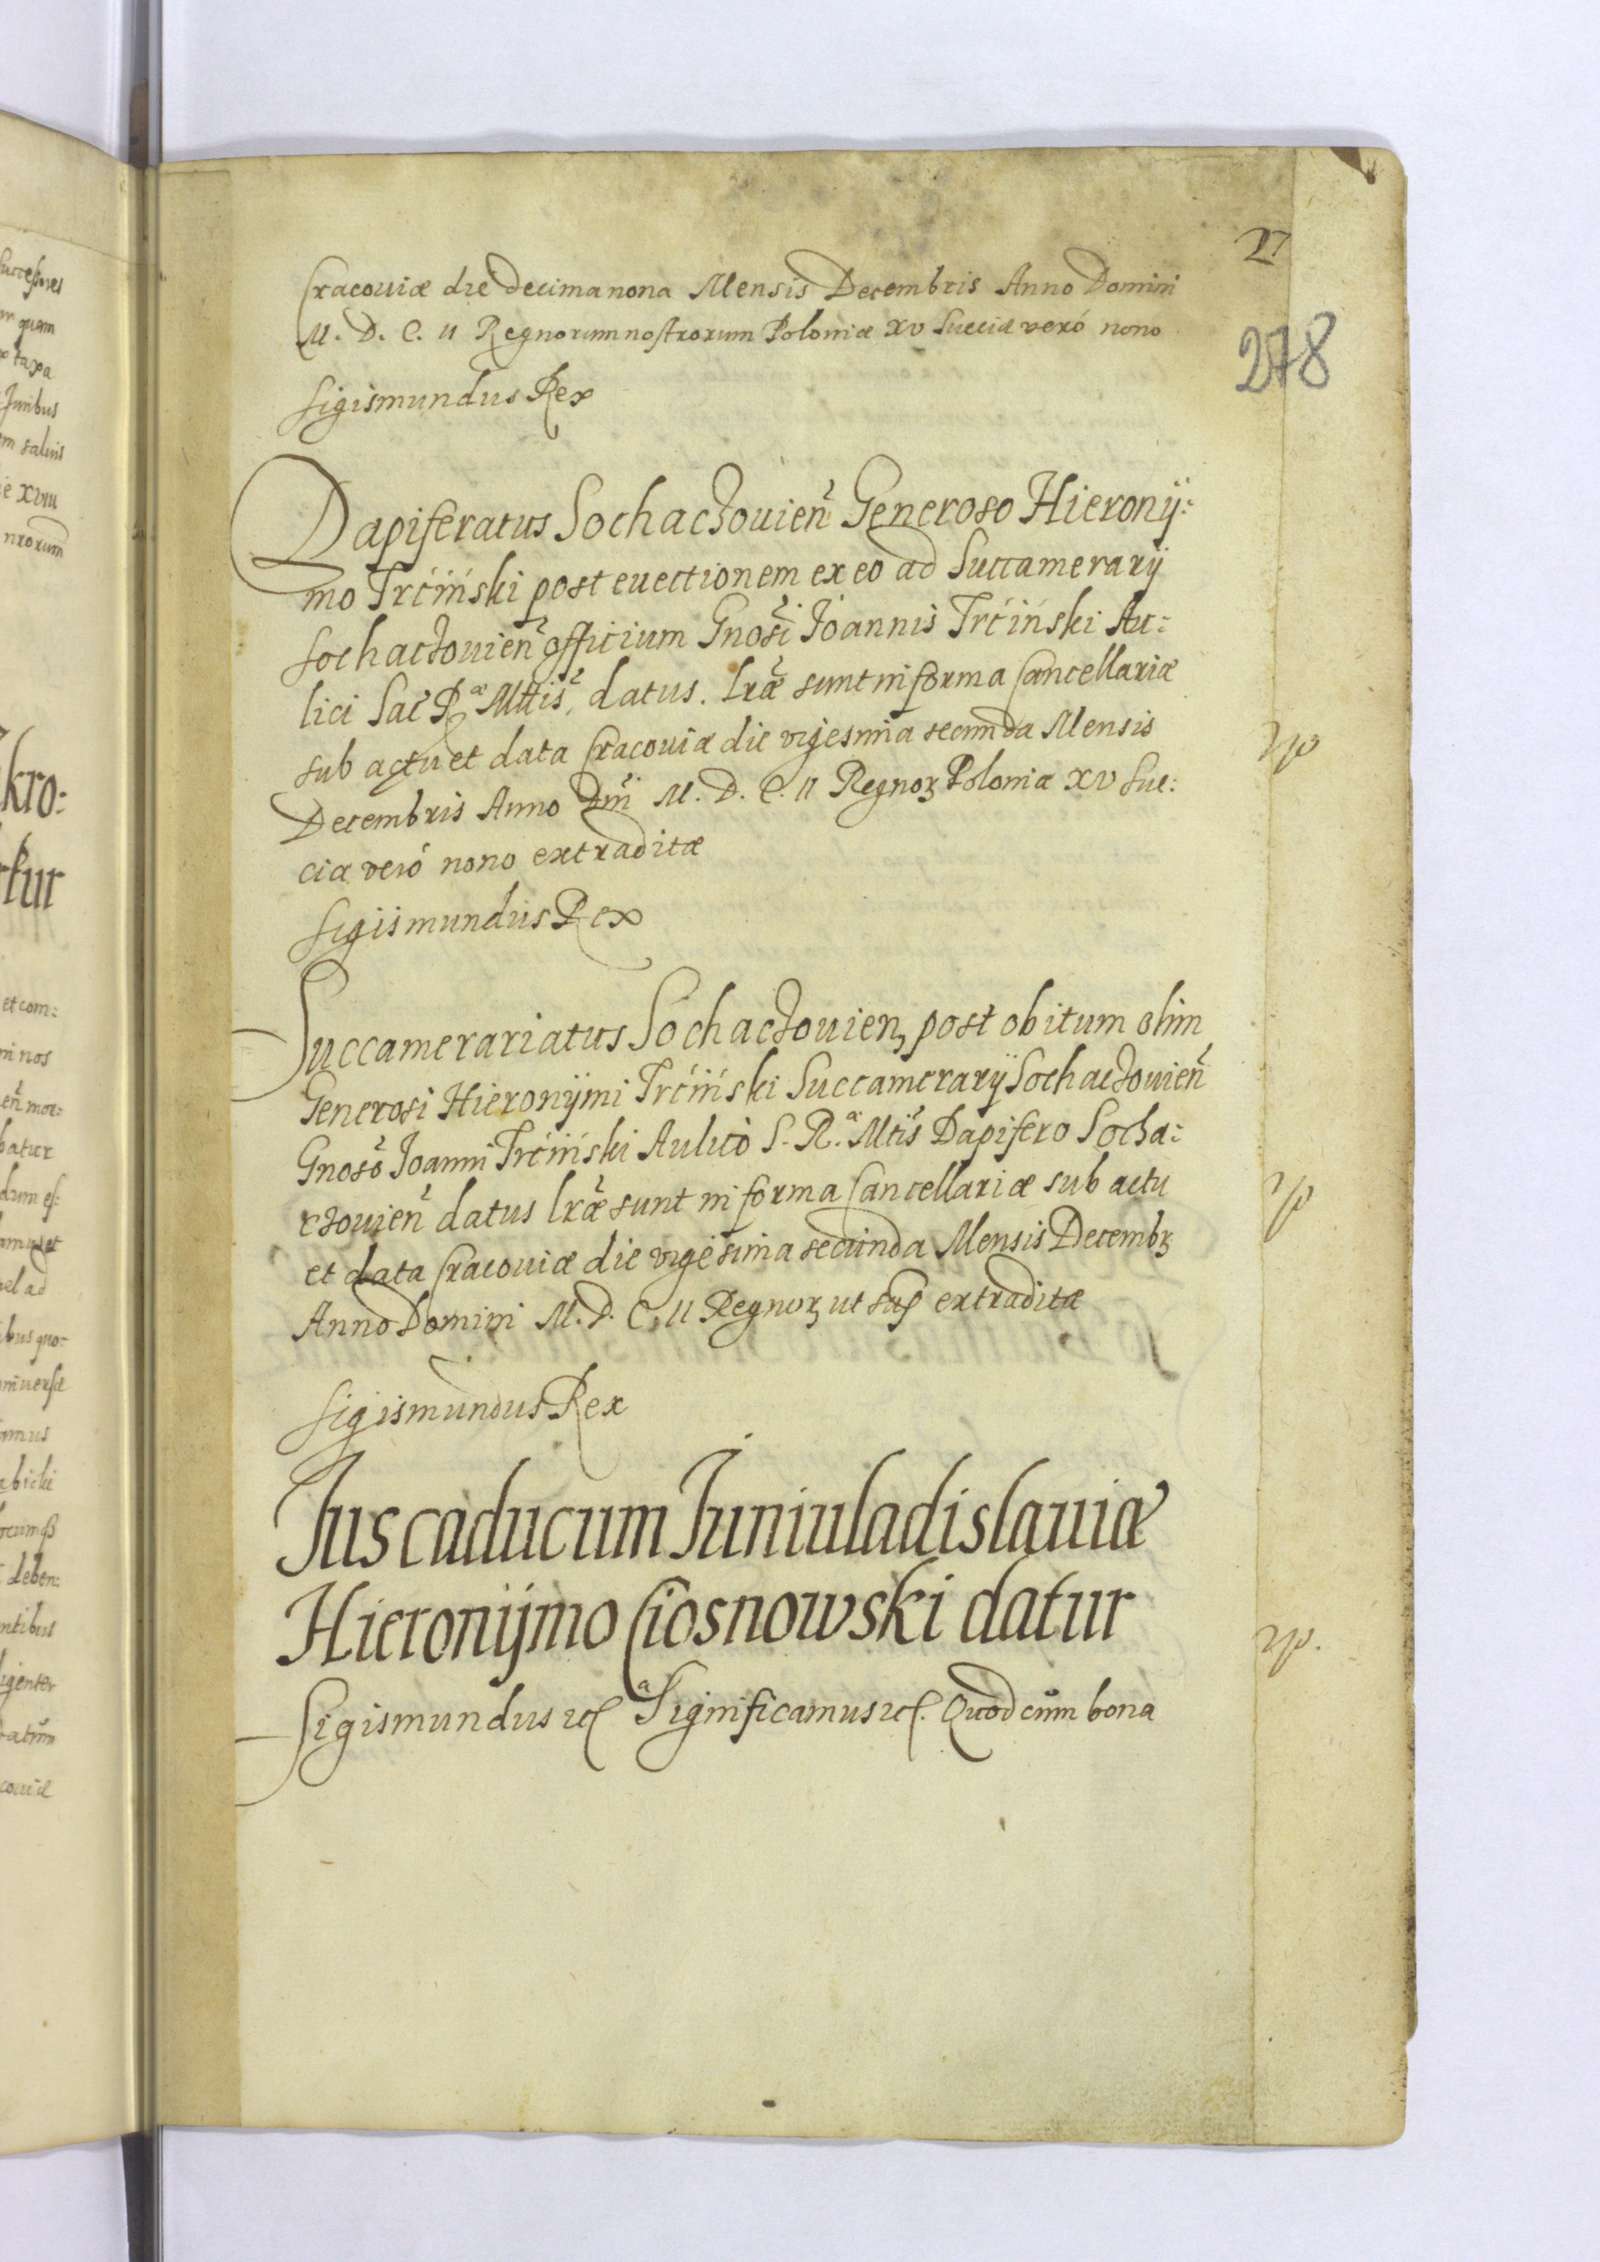 Cracouiæ die decima nona Mensis Decembris Anno Domini
M. D. C. II Regnorum nostrorum Poloniæ XV Sueciæ veró nono
Sigismundus Rex
278
Dapiferatus Sochactouien̄ Generoso Hieronÿ:
mo Trćiński post euectionem ex eo ad Succamerarÿ
Sochactouien̄ officium Gnosi Joannis Trćiński Au:
lici Sac R æ Mttis, datus. Lræ sunt in forma Cancellariæ
sub actu et data Cracouiæ die vigesima secunda Mensis
Decembris Anno Dni M. D. C. II Regnoꝝ Poloniæ XV Sue:
ciæ veró nono extraditæ
Sigismundus Rex
Succamerariatus Sochactouien, post obitum olim
Generosi Hieronÿmi Trćiński Succamerarÿ Sochactouien̄
Gnoso Joanni Trćiński Aulico S. R. æ Mtis Dapifero Socha:
ctouien̄ datus Lræ sunt in forma Cancellariæ sub actu
et data Cracouiæ die vigesima secunda Mensis Decembꝫ
Anno Domini M. D. C. II Regnoꝝ ut sup extraditæ
Sigismundus Rex
Jus caducum Juniuladislauiæ
Hieronÿmo Ciosnowski datur
Sigismundus etc Significamus etc. Quod cum bona